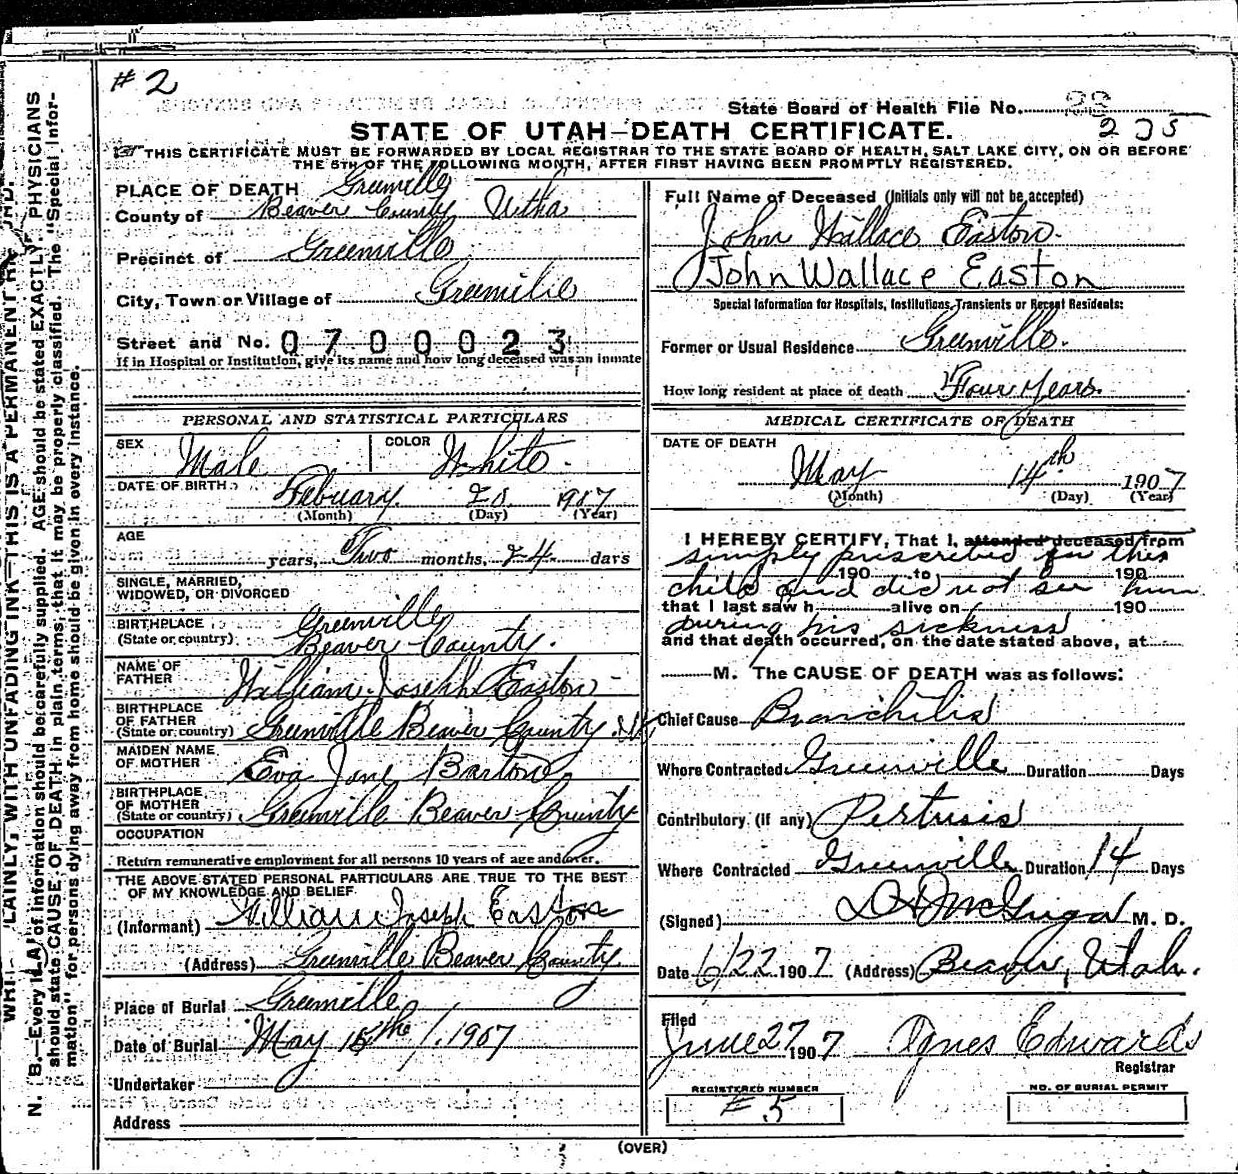 #2
State Board of Health File No. 23
235
STATE OF UTAH—DEATH CERTIFICATE.
THIS CERTIFICATE MUST BE FORWARDED BY LOCAL REGISTRAR TO THE STATE BOARD OF HEALTH, SALT LAKE CITY, ON OR BEFORE
THE 5TH OF THE FOLLOWING MONTH, AFTER FIRST HAVING BEEN PROMPTLY REGISTERED.
PLACE OF DEATH Greenville
County of Beaver County Utha
Precinct of Greenville
City, Town or Village of Greenvile
Street and No. 0700023
If in Hospital or Institution, give its name and how long deceased was an inmate
PERSONAL AND STATISTICAL PARTICULARS
SEX Male COLOR White.
DATE OF BIRTH February 20 1907
(Month) (Day) (Year)
AGE
years, Two months, 24 days
SINGLE, MARRIED,
WIDOWED, OR DIVORCED
BIRTHPLACE Greenville
(State or country) Beaver County.
NAME OF
FATHER William Joseph Easton
BIRTHPLACE
OF FATHER
(State or country) Greenville Beaver County
MAIDEN NAME
OF MOTHER Eva Jane Barton
BIRTHPLACE
OF MOTHER
(State or country) Greenville Beaver County
OCCUPATION
Return remunerative employment for all persons 10 years of age and over.
THE ABOVE STATED PERSONAL PARTICULARS ARE TRUE TO THE BEST
OF MY KNOWLEDGE AND BELIEF
(Informant) William Joseph Easton
(Address) Greenville Beaver County
Place of Burial Greenville
Date of Burial May 15the 1907
Undertaker
Address
Full Name of Deceased (Initials only will not be accepted)
John Wallace Easton.
John Wallace Easton
Special Information for Hospitals, Institutions, Transients or Recent Residents:
Former or Usual Residence Greenville.
How long resident at place of death Four Years.
MEDICAL CERTIFICATE OF DEATH
DATE OF DEATH
May 14th 1907
(Month) (Day) (Year)
I HEREBY CERTIFY, That I, attended deceased from
simply prescribed for this
190 to 190
child and did not see him
that I last saw h alive on 190
during his sickness
and that death occurred, on the date stated above, at
M. The CAUSE OF DEATH was as follows:
Chief Cause Bronchitis
Where Contracted Greenville Duration Days
Contributory (if any) Pertusis
Where Contracted Greenville Duration 14 Days
(Signed) M. D.
Date 6/22 1907 (Address) Beaver, Utah.
Filed
June 27 1907 Agnes Edwards
Registrar
REGISTERED NUMBER
#5
NO. OF BURIAL PERMIT
(OVER)
PLAINLY, WITH UNFADING INK—THIS IS A PERMANENT
N. B.—Every of information should be carefully supplied. AGE should be stated EXACTLY. PHYSICIANS
should state CAUSE OF DEATH in plain terms, that it may be properly classified. The "Special Infor-
mation" for persons dying away from home should be given in every instance.